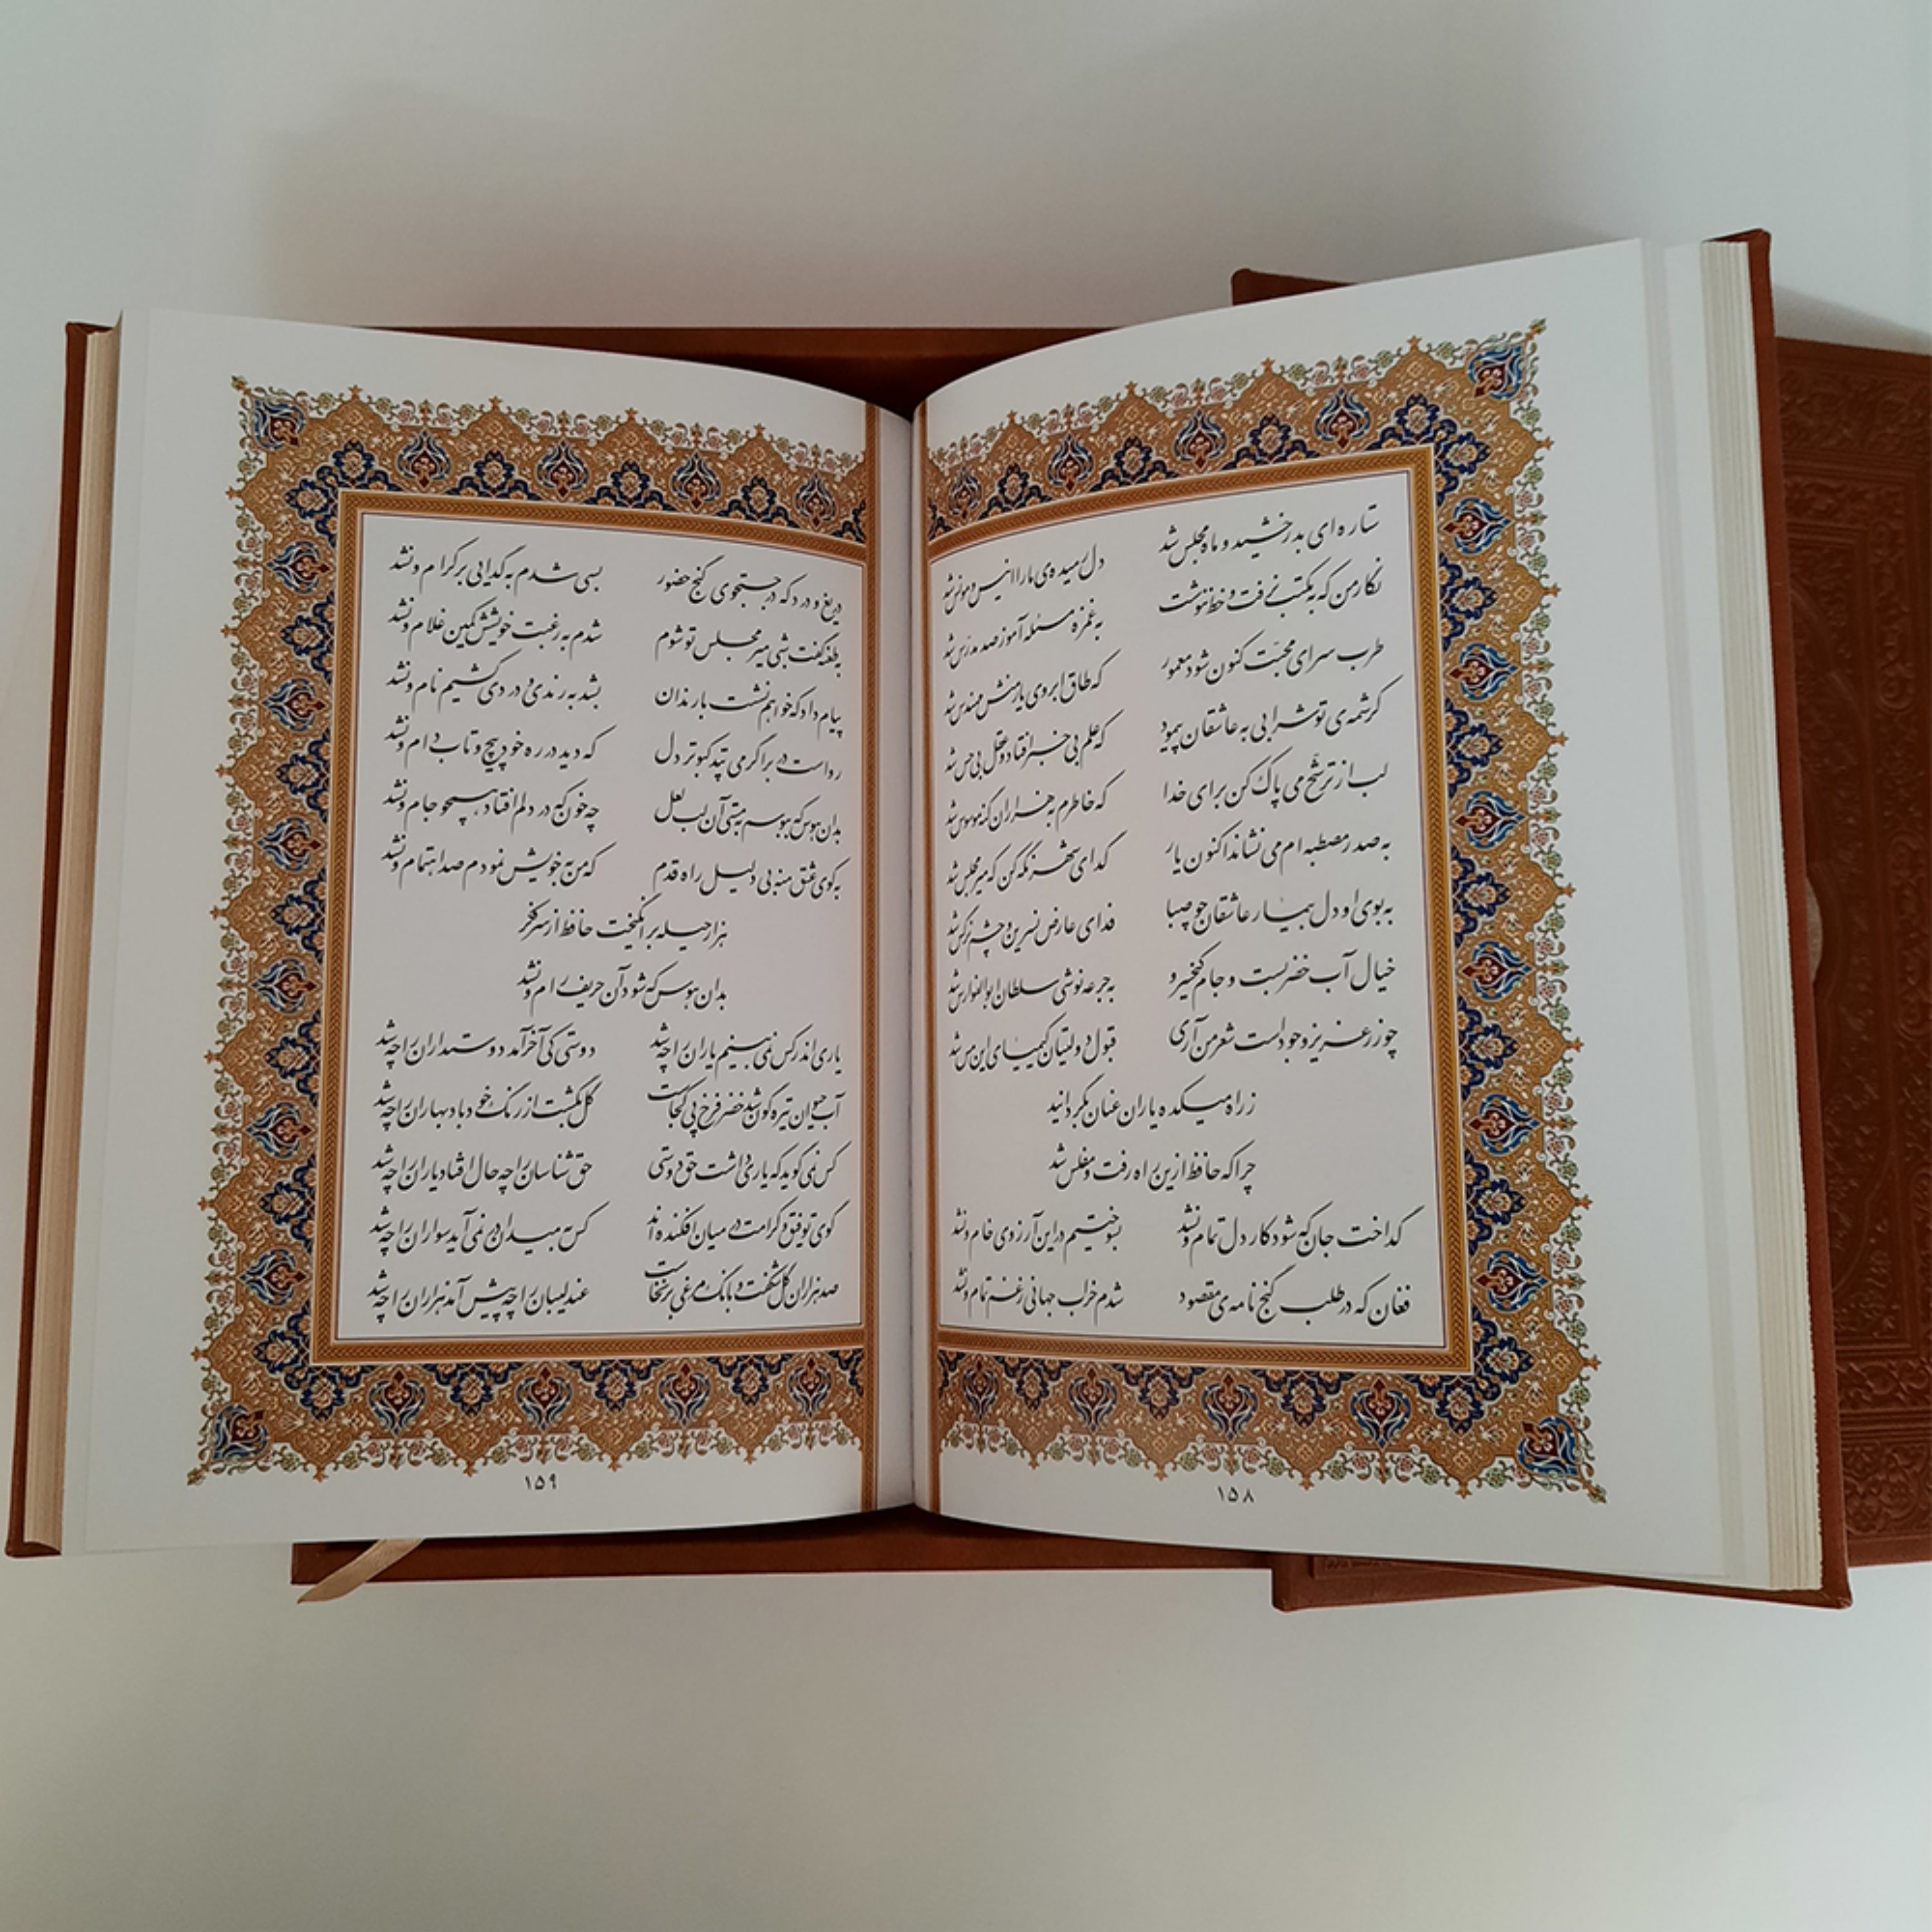 ستاره‌ای بدرخشید و ماه مجلس شد دل رمیده‌ی ما را انیس و مونس شد
نگار من که به مکتب نرفت و خط ننوشت به غمزه مسئله آموز صد مدرّس شد
طرب سرای محبّت کنون شود معمور که طاق ابروی یار منش مهندس شد
کرشمه‌ی تو شرابی به عاشقان پیمود که علم بی خبر افتاد و عقل بی حس شد
لب از ترشّح می پاک کن برای خدا که خاطرم به هزاران گنه موسوس شد
به صدر مصطبه‌ام می نشاند اکنون یار گدای شهر نگه کن که میر مجلس شد
به بوی او دل بیمار عاشقان چو صبا فدای عارض نسرین و چشم نرگس شد
خیال آب خضر بست و جام کیخسرو به جرعه نوشی سلطان ابوالفوارس شد
چو زر عزیز وجود است شعر من آری قبول دولتیان کیمیای این مس شد
ز راه میکده یاران عنان بگردانید
چرا که حافظ ازین راه رفت و مفلس شد
گداخت جان که شود کار دل تمام و نشد بسوختیم در این آرزوی خام و نشد
فغان که در طلب گنج نامه‌ی مقصود شدم خراب جهانی ز غم تمام و نشد
۱۵۸
دریغ و درد که در جستجوی گنج حضور بسی شدم به گدایی بر کرام و نشد
به طعنه گفت شبی میر مجلس تو شوم شدم به رغبت خویشش کمین غلام و نشد
پیام داد که خواهم نشست با رندان بشد به رندی و دردی کشیم نام و نشد
رواست در بر اگر می تپد کبوتر دل که دید در ره خود پیچ و تاب دام و نشد
بدان هوس که ببوسم به مستی آن لب لعل چه خون که در دلم افتاد همچو جام و نشد
به کوی عشق منه بی دلیل راه قدم که من به خویش نمودم صد اهتمام و نشد
هزار حیله برانگیخت حافظ از سر فکر
بدان هوس که شود آن حریف رام و نشد
یاری اندر کس نمی بینیم یاران را چه شد دوستی کی آخر آمد دوستداران را چه شد
آب حیوان تیره گون شد خضر فرخ پی کجاست گل بگشت از رنگ خود باد بهاران را چه شد
کس نمی گوید که یاری داشت حق دوستی حق شناسان را چه حال افتاد یاران را چه شد
گوی توفیق و کرامت در میان افکنده‌اند کس به میدان در نمی آید سواران را چه شد
صد هزاران گل شکفت و بانگ مرغی برنخاست عندلیبان را چه پیش آمد هزاران را چه شد
۱۵۹